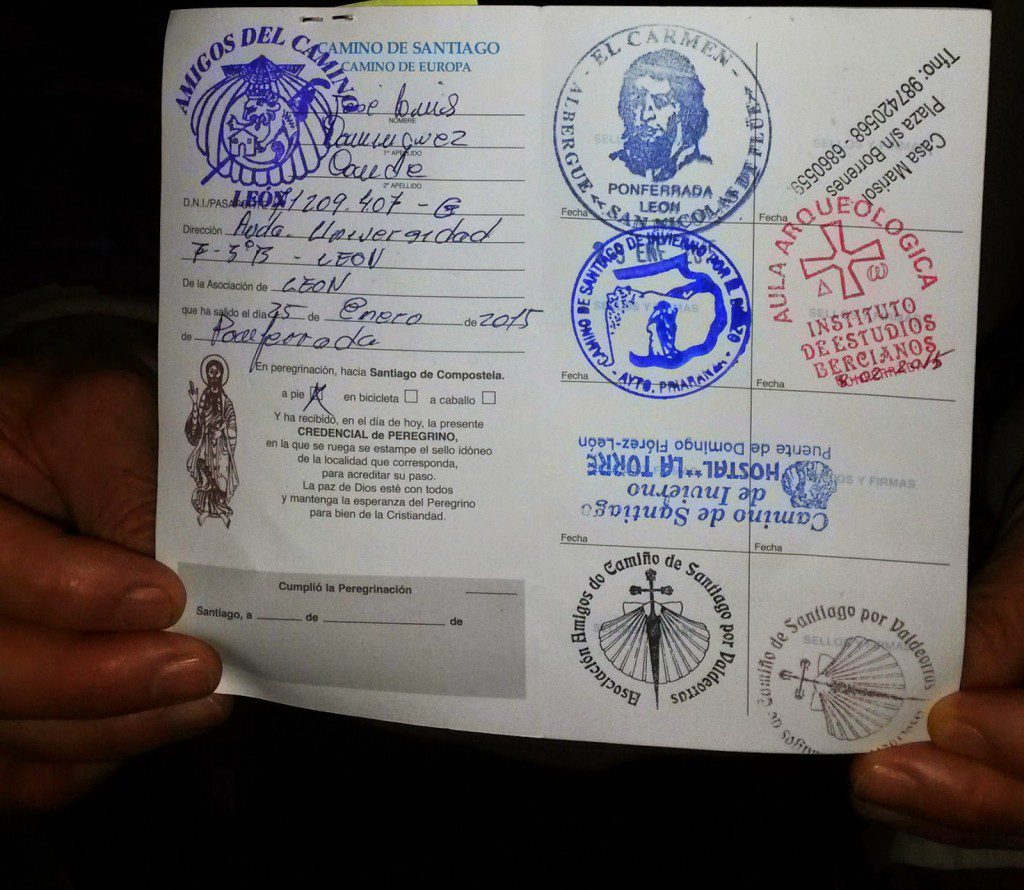 AMIGOS DEL CAMINO
LEÓN
CAMINO DE SANTIAGO
CAMINO DE EUROPA
José Luis
NOMBRE
Dominguez
1º APELLIDO
2º APELLIDO
D.N.I./PASAPORTE 71209.407 - G
Dirección Avda. Universidad
7-3ºB - LEON
De la Asociación de LEON
que ha salido el día 25 de Enero de 2015
de Ponferrada
En peregrinación, hacia Santiago de Compostela.
a pie X en bicicleta a caballo
Y ha recibido, en el día de hoy, la presente
CREDENCIAL de PEREGRINO,
en la que se ruega se estampe el sello idóneo
de la localidad que corresponda,
para acreditar su paso.
La paz de Dios esté con todos
y mantenga la esperanza del Peregrino
para bien de la Cristiandad.
Cumplió la Peregrinación
Santiago, a de de
ALBERGUE - EL CARMEN -
« SAN NICOLAS DE FLUE »
PONFERRADA
LEON
Fecha
Casa Marisol
Plaza s/n Borrenes
Tfno: 987420568 - 6860559
Fecha
CAMINO DE SANTIAGO DE INVIERNO POR
- AYTO. PRIARANZA -
ENE
Fecha
AULA ARQUEOLOGICA
INSTITUTO
DE ESTUDIOS
BERCIANOS
Fecha
Camino de Santiago
de Invierno
HOSTAL**LA TORRE
Puente de Domingo Flórez-León
SELLOS Y FIRMAS
Fecha
Fecha
Asociación Amigos do Camiño de Santiago por Valdeorras
Amigos do Camiño de Santiago por Valdeorras